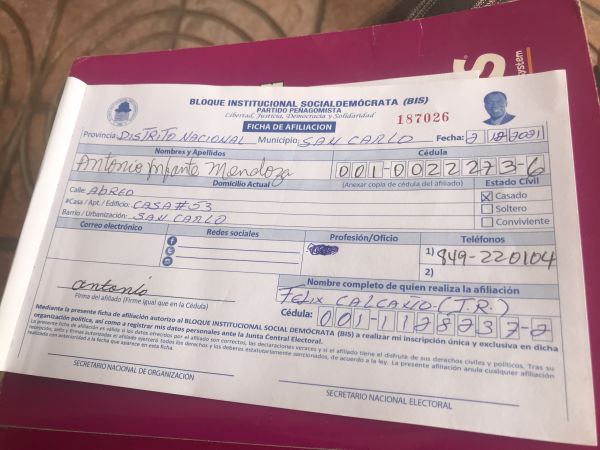 S
system
BLOQUE INSTITUCIONAL SOCIALDEMÓCRATA (BIS)
PARTIDO PEÑAGOMISTA
Libertad, Justicia, Democracia y Solidaridad
187026
FICHA DE AFILIACION
Provincia: DISTRITO NACIONAL Municipio: SAN CARLO Fecha: 2 12 2021
Nombres y Apellidos Cédula
Antonio Infante Mendoza 001-0022273-6
Domicilio Actual (Anexar copia de cédula del afiliado) Estado Civil
Calle: ABREO Casado
#Casa / Apt. / Edificio: CASA #53 Soltero
Barrio / Urbanización: SAN CARLO Conviviente
Correo electrónico Redes sociales Profesión/Oficio Teléfonos
1) 849-220104
2)
antonio
Firma del afiliado (Firme igual que en la Cédula)
Nombre completo de quien realiza la afiliación
FELIX CALCAÑO (J.R.)
Cédula: 001-1178737-2
Mediante la presente ficha de afiliación autorizo al BLOQUE INSTITUCIONAL SOCIAL DEMÓCRATA (BIS) a realizar mi inscripción única y exclusiva en dicha
organización política, así como a registrar mis datos personales ante la Junta Central Electoral.
La presente ficha de afiliación es válida si los datos ofrecidos por el afiliado son correctos, las declaraciones veraces y si el afiliado tiene el disfrute de sus derechos civiles y políticos. Tras su
recepción, sello y firmas autorizadas el afiliado ejercerá todos los derechos y los deberes estatutariamente sancionados, de acuerdo a la ley. La presente afiliación anula cualquier afiliación
realizada con anterioridad a la fecha que aparece en esta ficha.
SECRETARIO NACIONAL DE ORGANIZACIÓN
SECRETARIO NACIONAL ELECTORAL